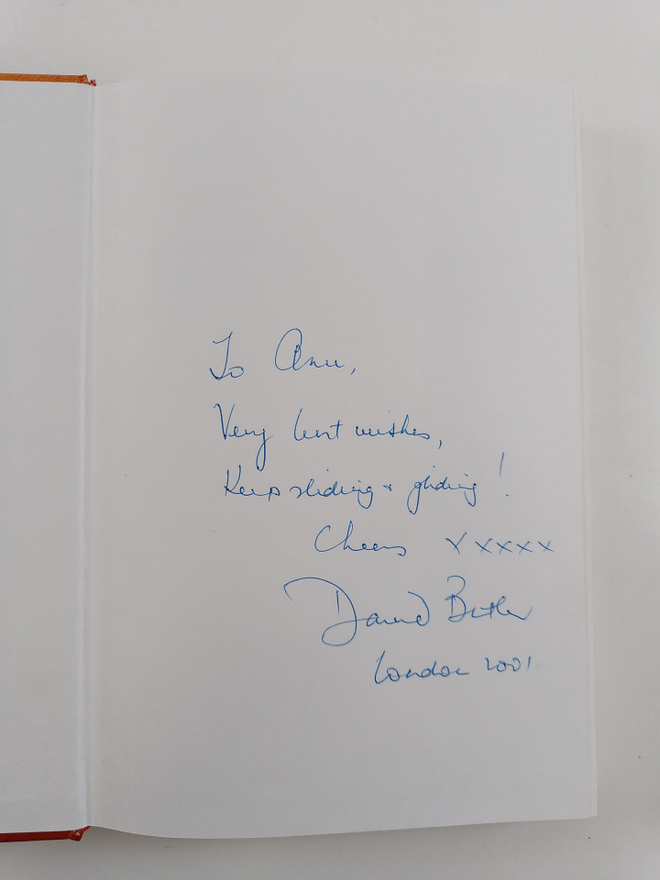 To Anne,
Very best wishes,
Keep sliding + gliding!
Cheers xxxxx
David Butler
London 2001